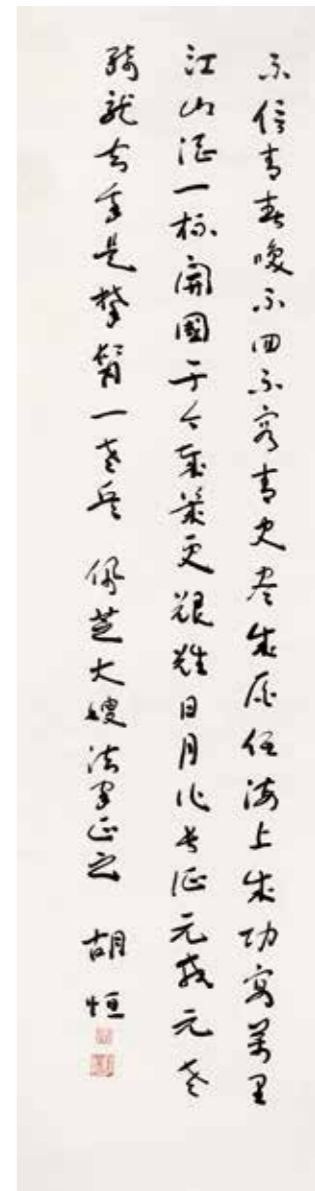 不信青春喚不回不容青史尽成灰低海上成功宴萬里
江山酒一杯開國于今歲幾更艱難日月作長征元戎元老
騎龍去身是攀髯一老兵 佩芝大嫂法家正之 胡恒